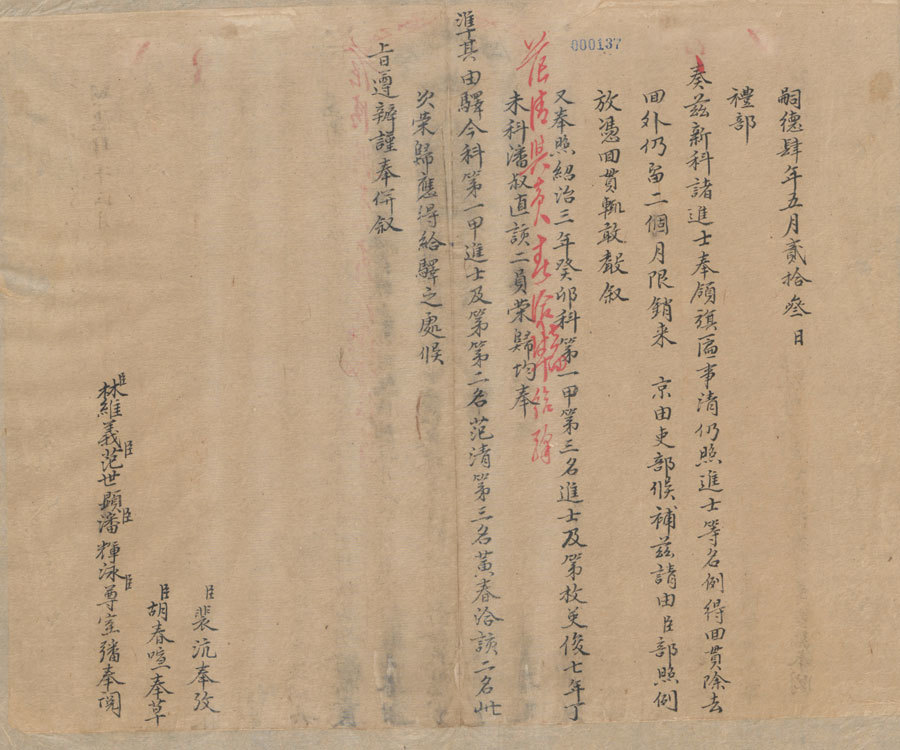 嗣德肆年五月貳拾叁日
禮部
奏茲新科諸進士奉領旗匾事清仍照進士等名例得回貫除去
回外仍留二個月限銷来 京由吏部候補茲請由臣部照例
放憑回貫輒敢聲叙
又奉照紹治三年癸卯科第一甲第三名進士及第枚英俊七年丁
范清黃春洽
未科潘叔直該二員榮歸均奉
準其由驛今科第一甲進士及第第二名范清第三名黃春洽該二名此
次榮歸應得給驛之處候
旨遵辦謹奉併叙
臣裴沆奉攷
臣胡春喧奉草
臣林維義臣范世顯臣潘輝泳臣尊室𤅷奉閱
000137